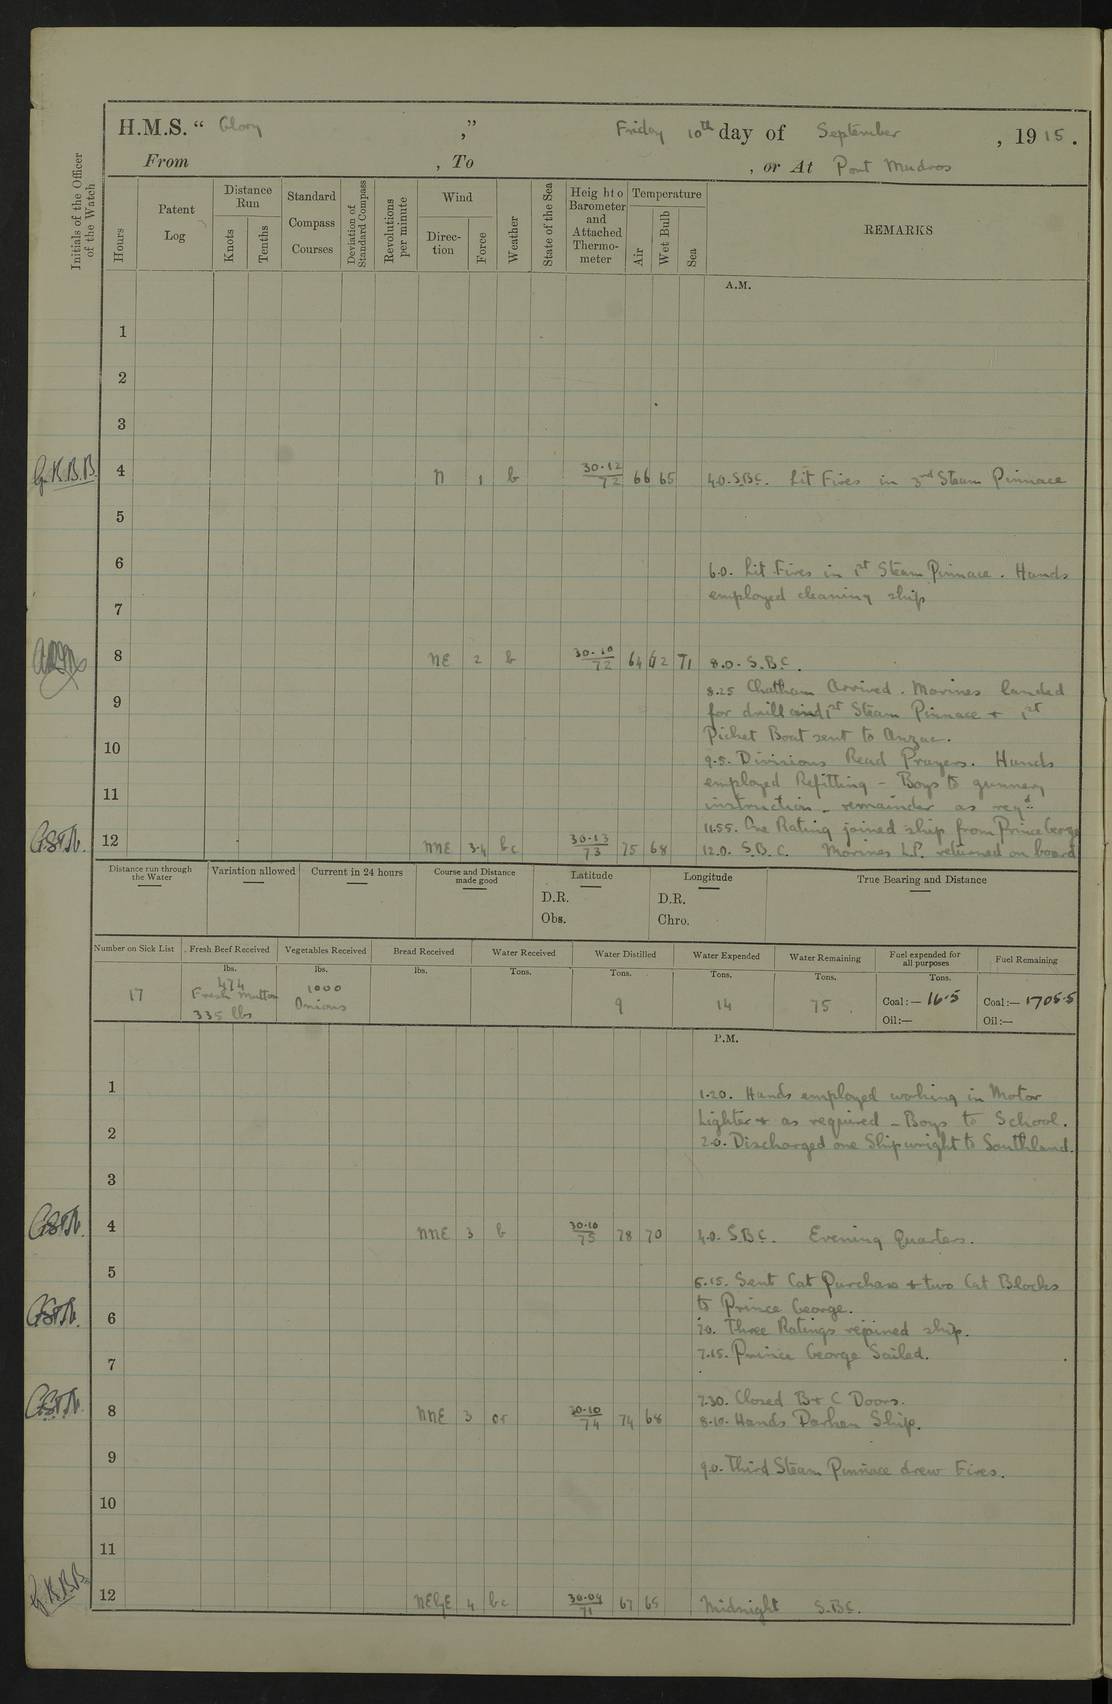 H.M.S. “ Glory ,” Friday 10th day of September , 1915.
From , To , or At Port Mudros
Initials of the Officer of the Watch
Hours
Patent Log
Distance Run
Knots
Tenths
Standard Compass Courses
Deviation of Standard Compass
Revolutions per minute
Wind
Direc-tion
Force
Weather
State of the Sea
Height o Barometer and Attached Thermo-meter
Temperature
Air
Wet Bulb
Sea
REMARKS
A.M.
1
2
3
G.K.B.B. 4 N 1 b 30.12/72 66 65 4.0. S.B.C. Lit Fires in 3rd Steam Pinnace
5
6 6.0. Lit Fires in 1st Steam Pinnace. Hands
employed cleaning ship
7
8 NE 2 b 30.10/72 64 62 71 8.0. S.B.C.
8.25 Chatham Arrived. Marines landed
9 for drill and 1st Steam Pinnace + 1st
Picket Boat sent to Anzac.
10 9.5. Divisions Read Prayers. Hands
employed Refitting - Boys to gunnery
11 instruction - remainder as reqd
11.55. One Rating joined ship from Prince George
12 NNE 3-4 bc 30.13/73 75 68 12.0. S.B.C. Marines L.P. returned on board
Distance run through the Water
Variation allowed
Current in 24 hours
Course and Distance made good
Latitude
D.R.
Obs.
Longitude
D.R.
Chro.
True Bearing and Distance
Number on Sick List
Fresh Beef Received
Vegetables Received
Bread Received
Water Received
Water Distilled
Water Expended
Water Remaining
Fuel expended for all purposes
Fuel Remaining
lbs. lbs. lbs. Tons. Tons. Tons. Tons. Tons.
17 474 1000 9 14 75 Coal:— 16.5 Coal:— 1705.5
Fresh Mutton Onions
335 lbs Oil:— Oil:—
P.M.
1 1.20. Hands employed working in Motor
Lighter + as required - Boys to School.
2 2.0. Discharged one Shipwright to Southland.
3
4 NNE 3 b 30.10/75 78 70 4.0. S.B.C. Evening Quarters.
5 5.15. Sent Cat Purchase + two Cat Blocks
to Prince George.
6 Three Ratings rejoined ship.
7 7.15. Prince George Sailed.
7.30. Closed B + C Doors.
8 NNE 3 30.10/74 74 68 8.10. Hands Darken Ship.
9 9.0. Third Steam Pinnace drew Fires.
10
11
G.K.B.B. 12 NEbE 4 bc 30.09/71 67 65 Midnight S.B.C.